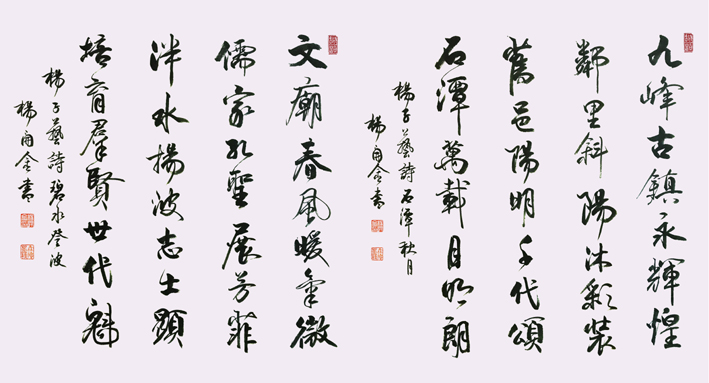 九峰古鎮永輝煌
鄰里斜陽沐彩裝
舊邑陽明千代頌
石潭萬載月明朗
楊子藝詩石潭秋月
楊書
文廟春風暖氣微
儒家孔聖展芳菲
泮水揚波志士顯
培育羣賢世代魁
楊子藝詩碧水登波
楊書